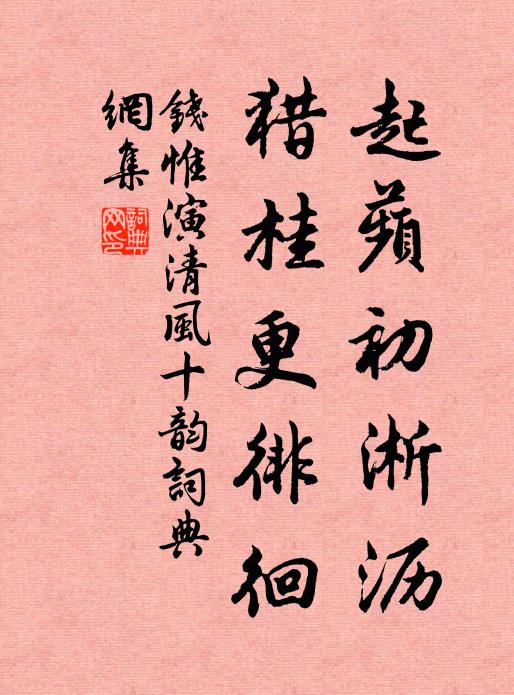 起蘋初淅沥
猎桂更徘徊
錢惟演清風十韵詞典
網集
詞典網印